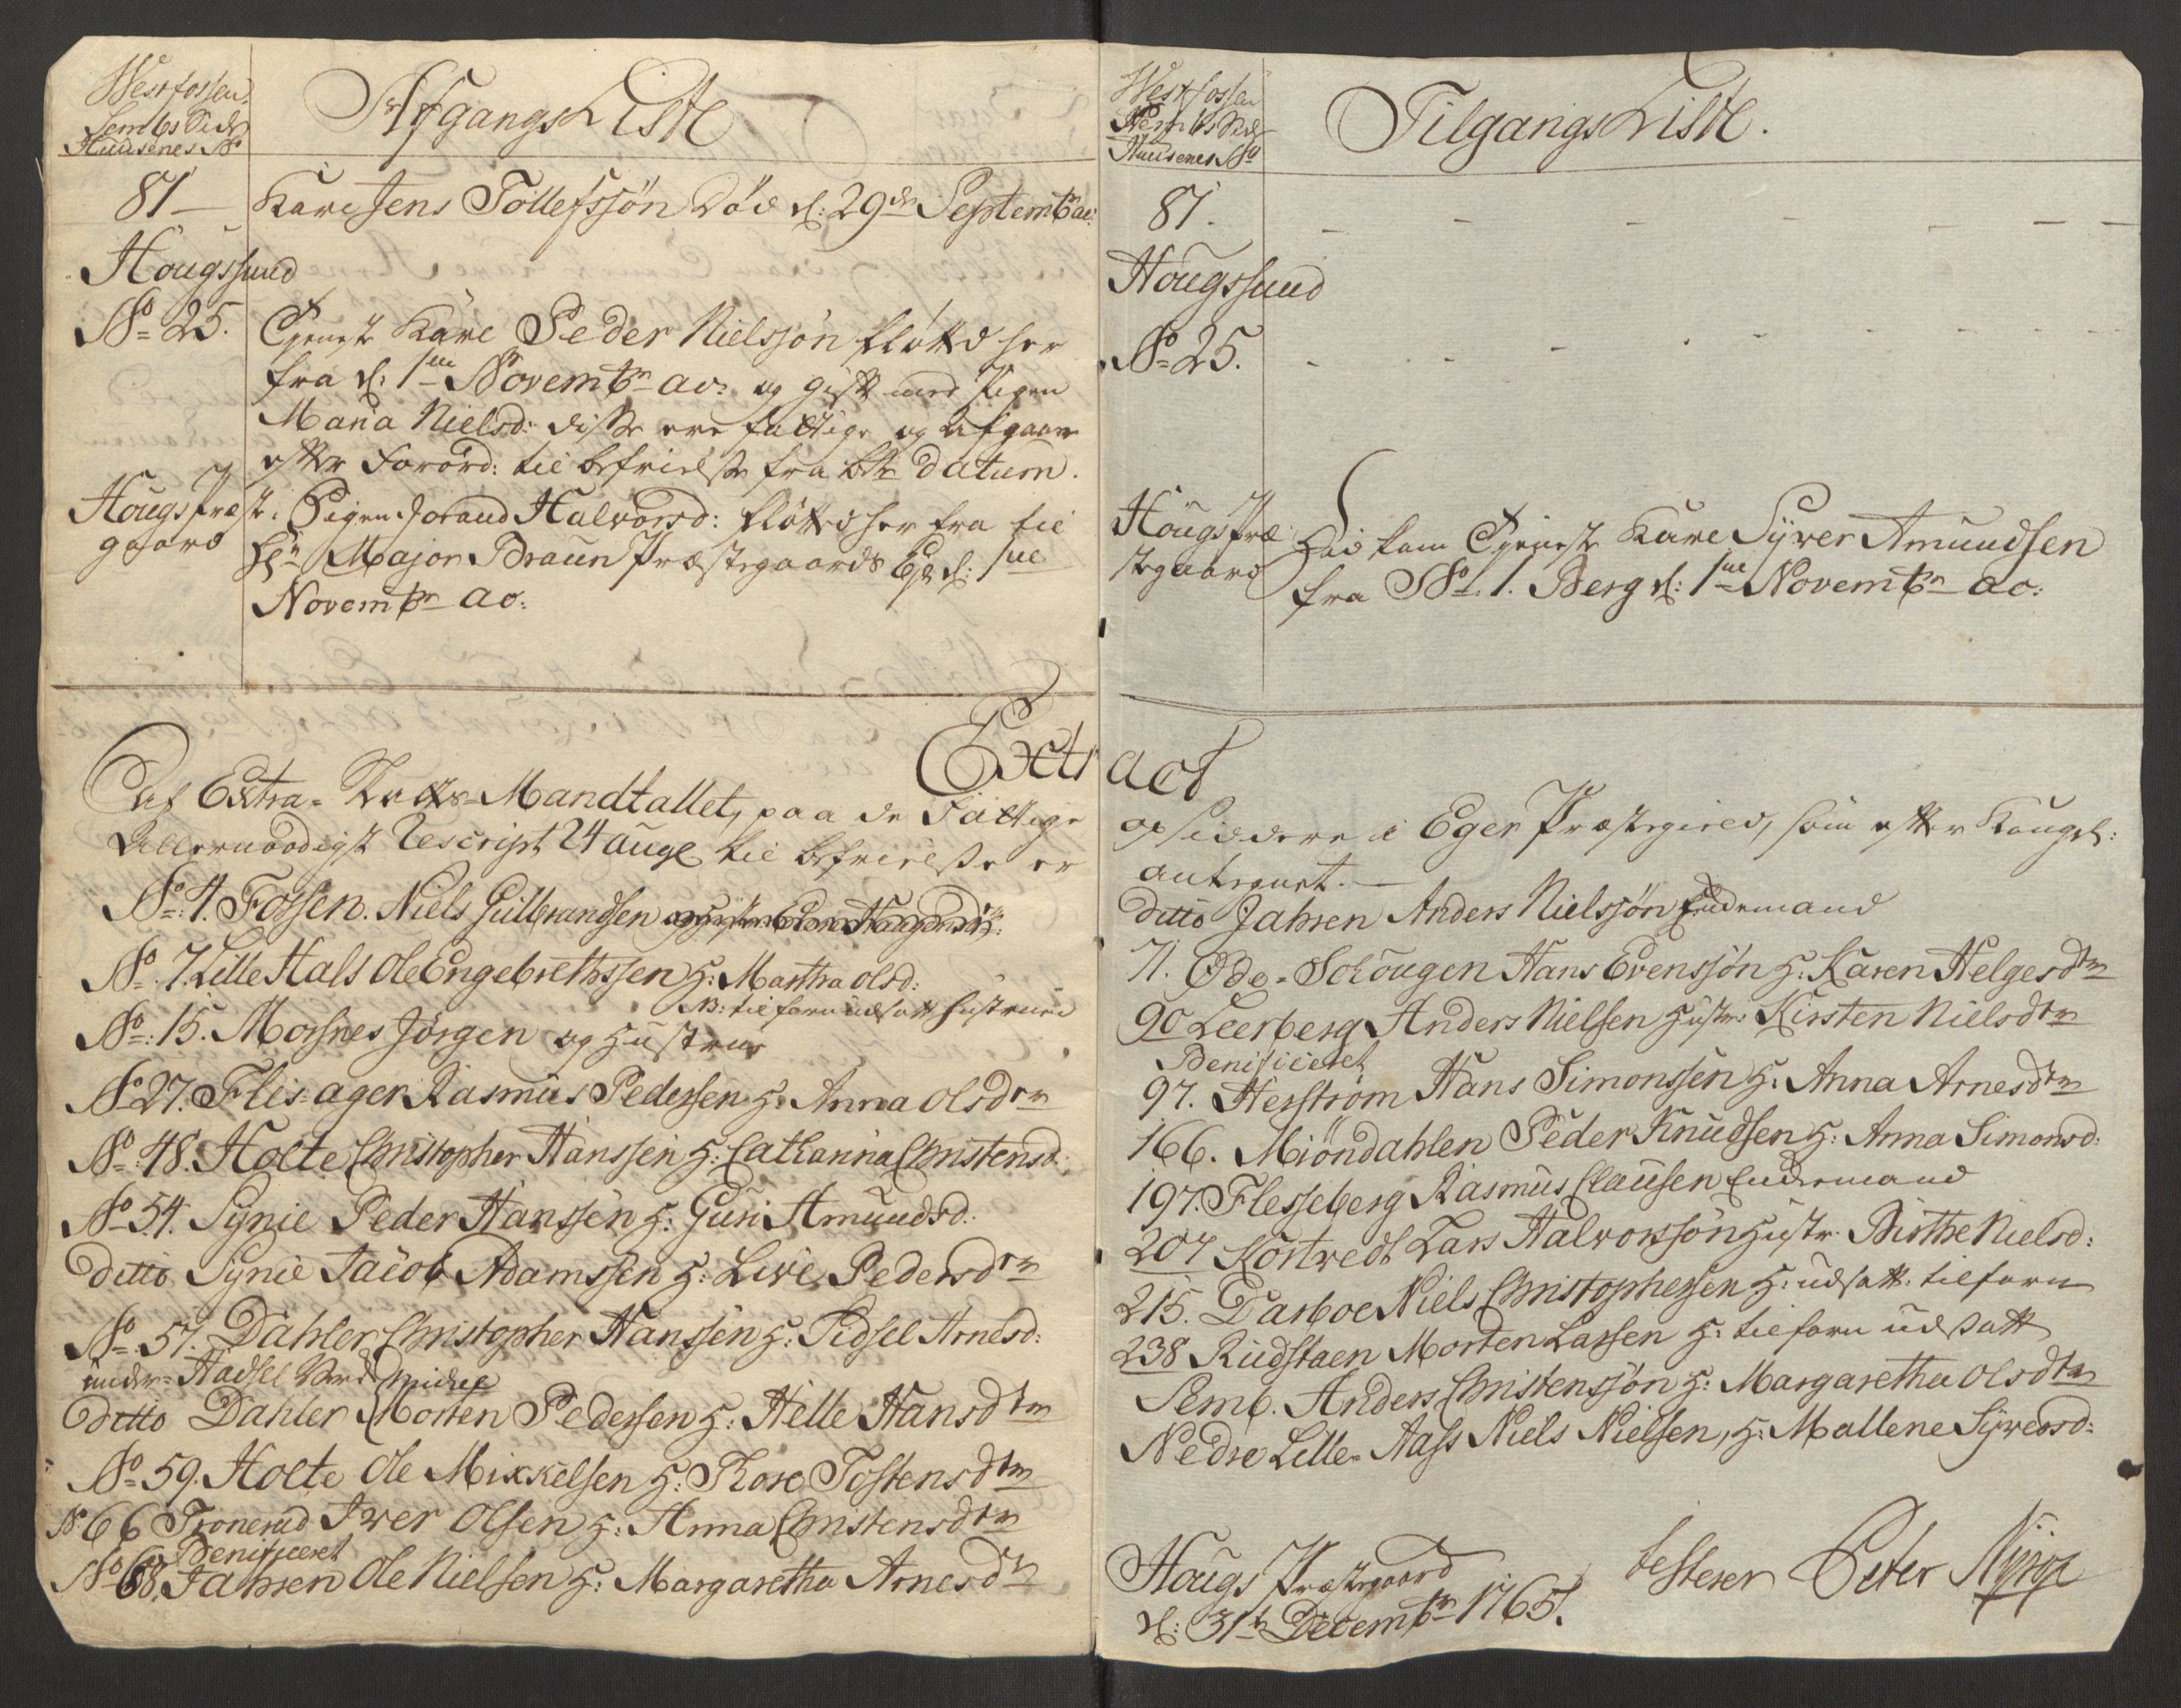 Westfossen
Sembs Side
Huusenes No
Afgangs Liste
81 — Karl Jens Tollefssön Död d: 29de Septembr ao:
Hougssund
No 25. Tieneste Karl Peder Nielssön flötted her
fra d: 1ne Novembr ao: og gift med Pigen
Maria Nielsd: disse ere fattige og Afgaar
efter Forord: til befrielse fra datum.
Hougs Præst
gaard
Pigen Jorand Halvorsd: flötted her fra til
Hr Major Braun Præstegaards d: 1ne
Novembr ao:
Westfossen
Sembs Side
Huusenes No
Tilgangs Liste.
81.
Hougssund
No 25.
Hougs Præ
stegaard
Hid kom Tieneste Karl Syver Amundsen
fra No 1. Berg d: 1ne Novembr ao:
Extract
Af Extra-Skatte-Mandtallet, paa de Fattige opsiddere i Eger Præstegield, som efter Kongel:
Allernaadigst Rescript 24 aug til befrielse er antegnet. —
No: 4. Fossen. Niels Gulbrandsen
No. 7. Lille Hals Ole Engebrethssen H: Marthra Olsd:
No: 15. Mosnes Jörgen og Hustrue
NB: tilforn udsatt Hustrue
No 27. Flis-ager Rasmus Pedersen H: Anna Olsdtr
No: 48. Holte Christopher Hanssen H: Catharina Christensd:
No 54. Synie Peder Hanssen H: Guri Amundsd:
Ditto Synie Jacob Adamssen H: Live Pedersdtr
No: 57. Dahler Christopher Hanssen H: Sidsel Arnesd:
under-Hadsel
Ditto Dahler Morten Pedersen H: Helle Hansdtr
No 59. Holte Ole Mikkelsen H: Thore Tostensdtr
No 66 Tronerud Iver Olsen H: Anna Christensdtr
Benificeret
No 68. Jahren Ole Nielsen H: Margaretha Arnesdr
Ditto Jahren Anders Nielssön Enkemand
71. Öde-Schougen Hans Evenssön H: Karen Helgesdtr
90 Leerberg Anders Nielsen Hustr: Kirsten Nielsdtr
Benificeret
97. Herström Hans Simonssen H: Anna Arnesdtr
166. Miöndahlen Peder Knudsen H: Anna Simonsd:
197. Flesseberg Rasmus Clausen Enkemand
207 Kortvedt Lars Halvorssön Hustr: Birthe Nielsd:
215. Darboe Niels Christophersen H: udsatt tilforn
238 Rudstaen Morten Larsen H: tilforn udsatt
Semb. Anders Christenssön H: Margaretha Olsdtr
Nedre Lille-Aass Niels Nielsen, H: Mallene Syversd:
Hougs Præstegaard
d: 31te Decembr 1765.
testerer Peter Nyrop